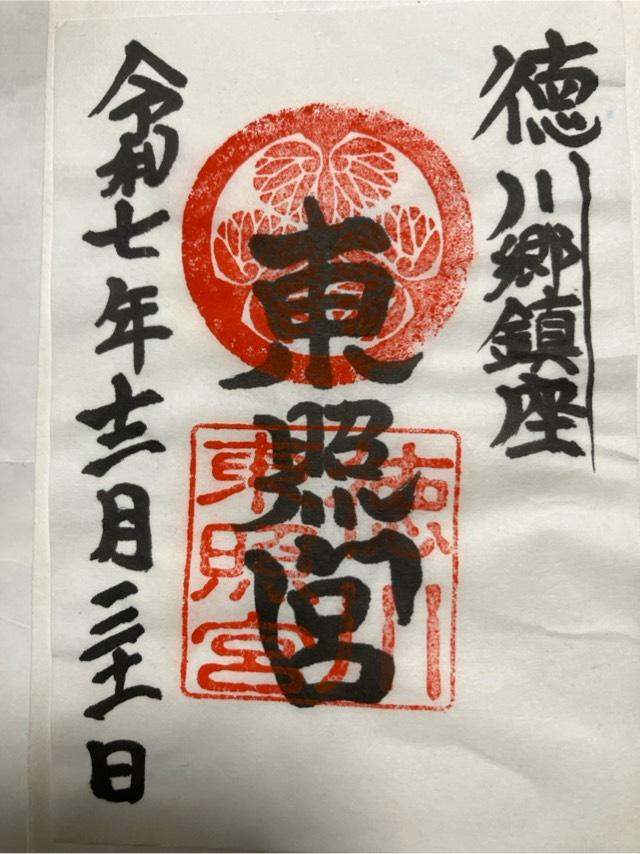 徳川郷鎮座
東照宮
徳川
東照宮
令和七年十二月三十一日